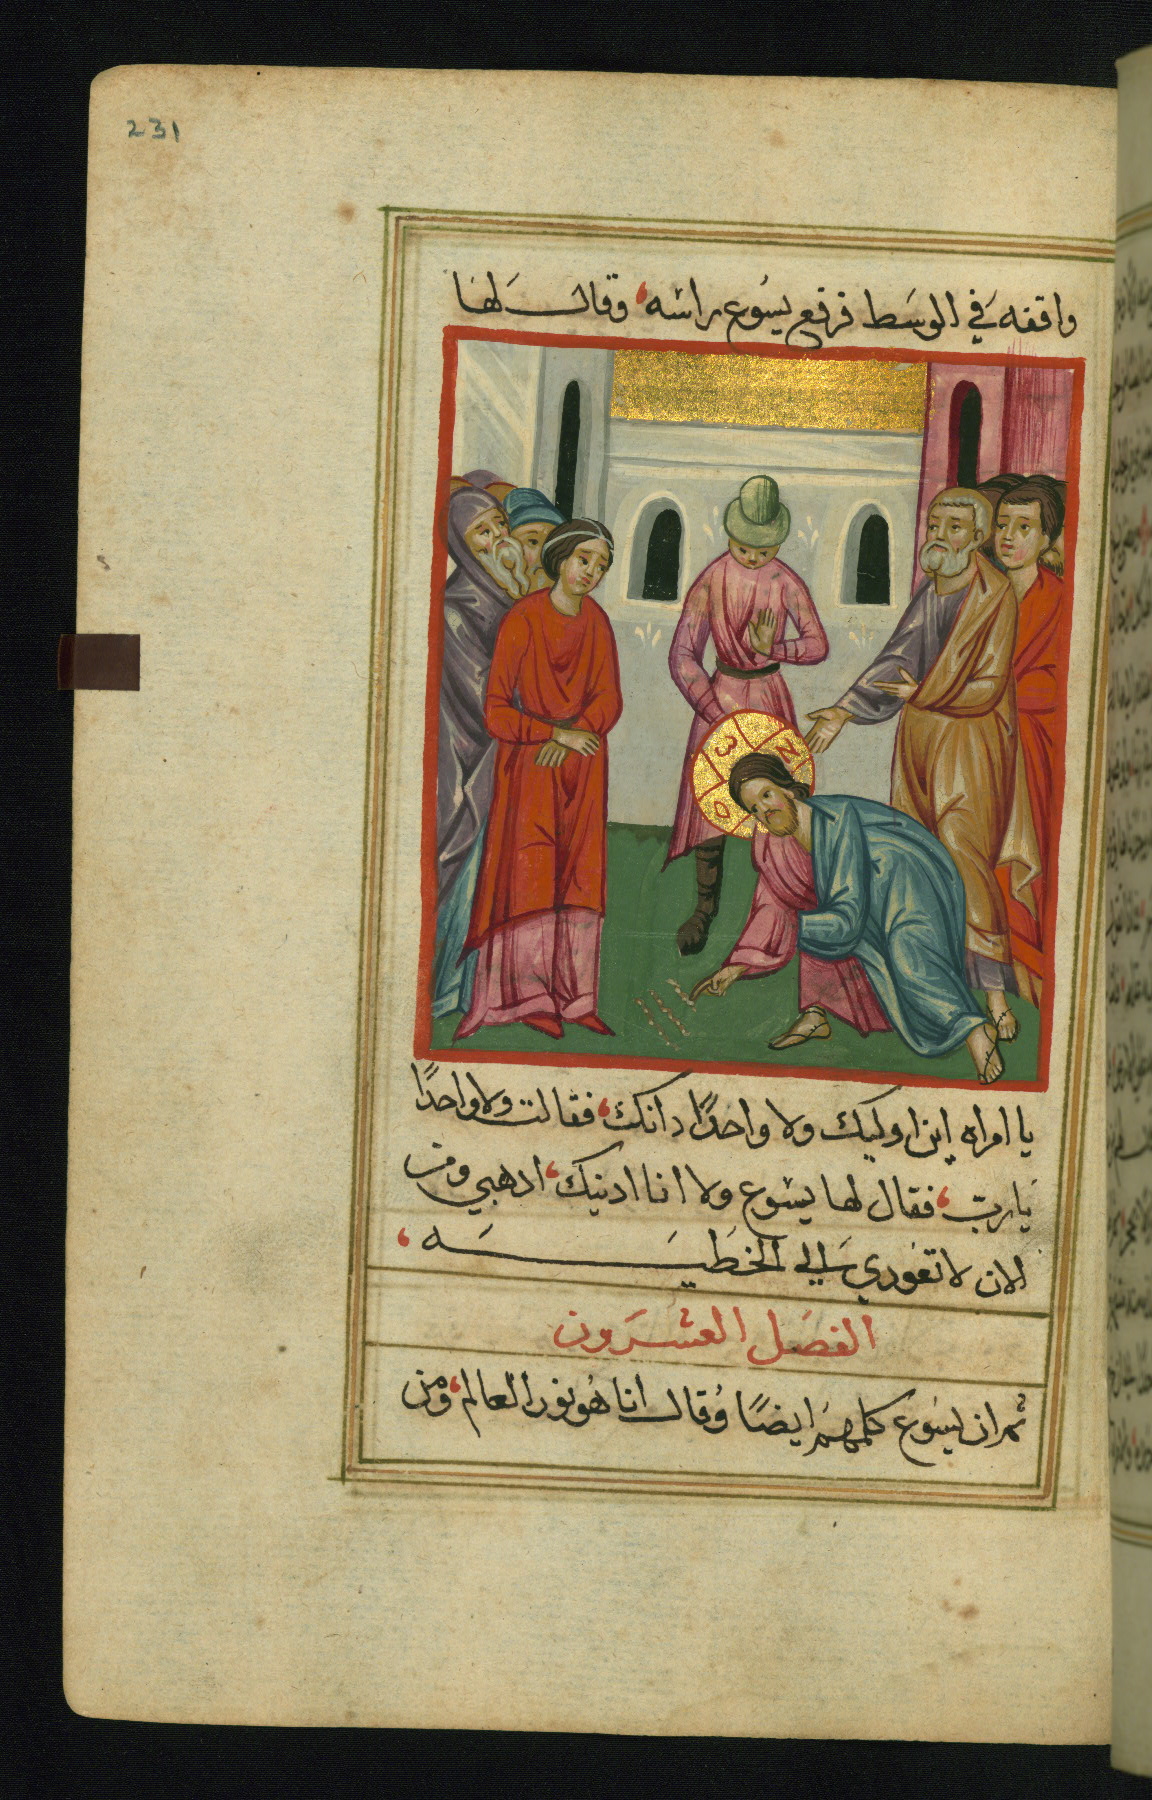 231
واقفه في الوسط فرفع يسوع راسه، وقال لها
يا امراه اين اوليك ولا واحدًا دانك، فقالت ولا واحدًا
يارب، فقال لها يسوع ولا انا ادنيك، ادهبي ومن
الان لا تعودي الي الخطيه،
الفصل العشرون
ثم ان يسوع كلمهم ايضًا وقال انا هو نور العالم، ومن